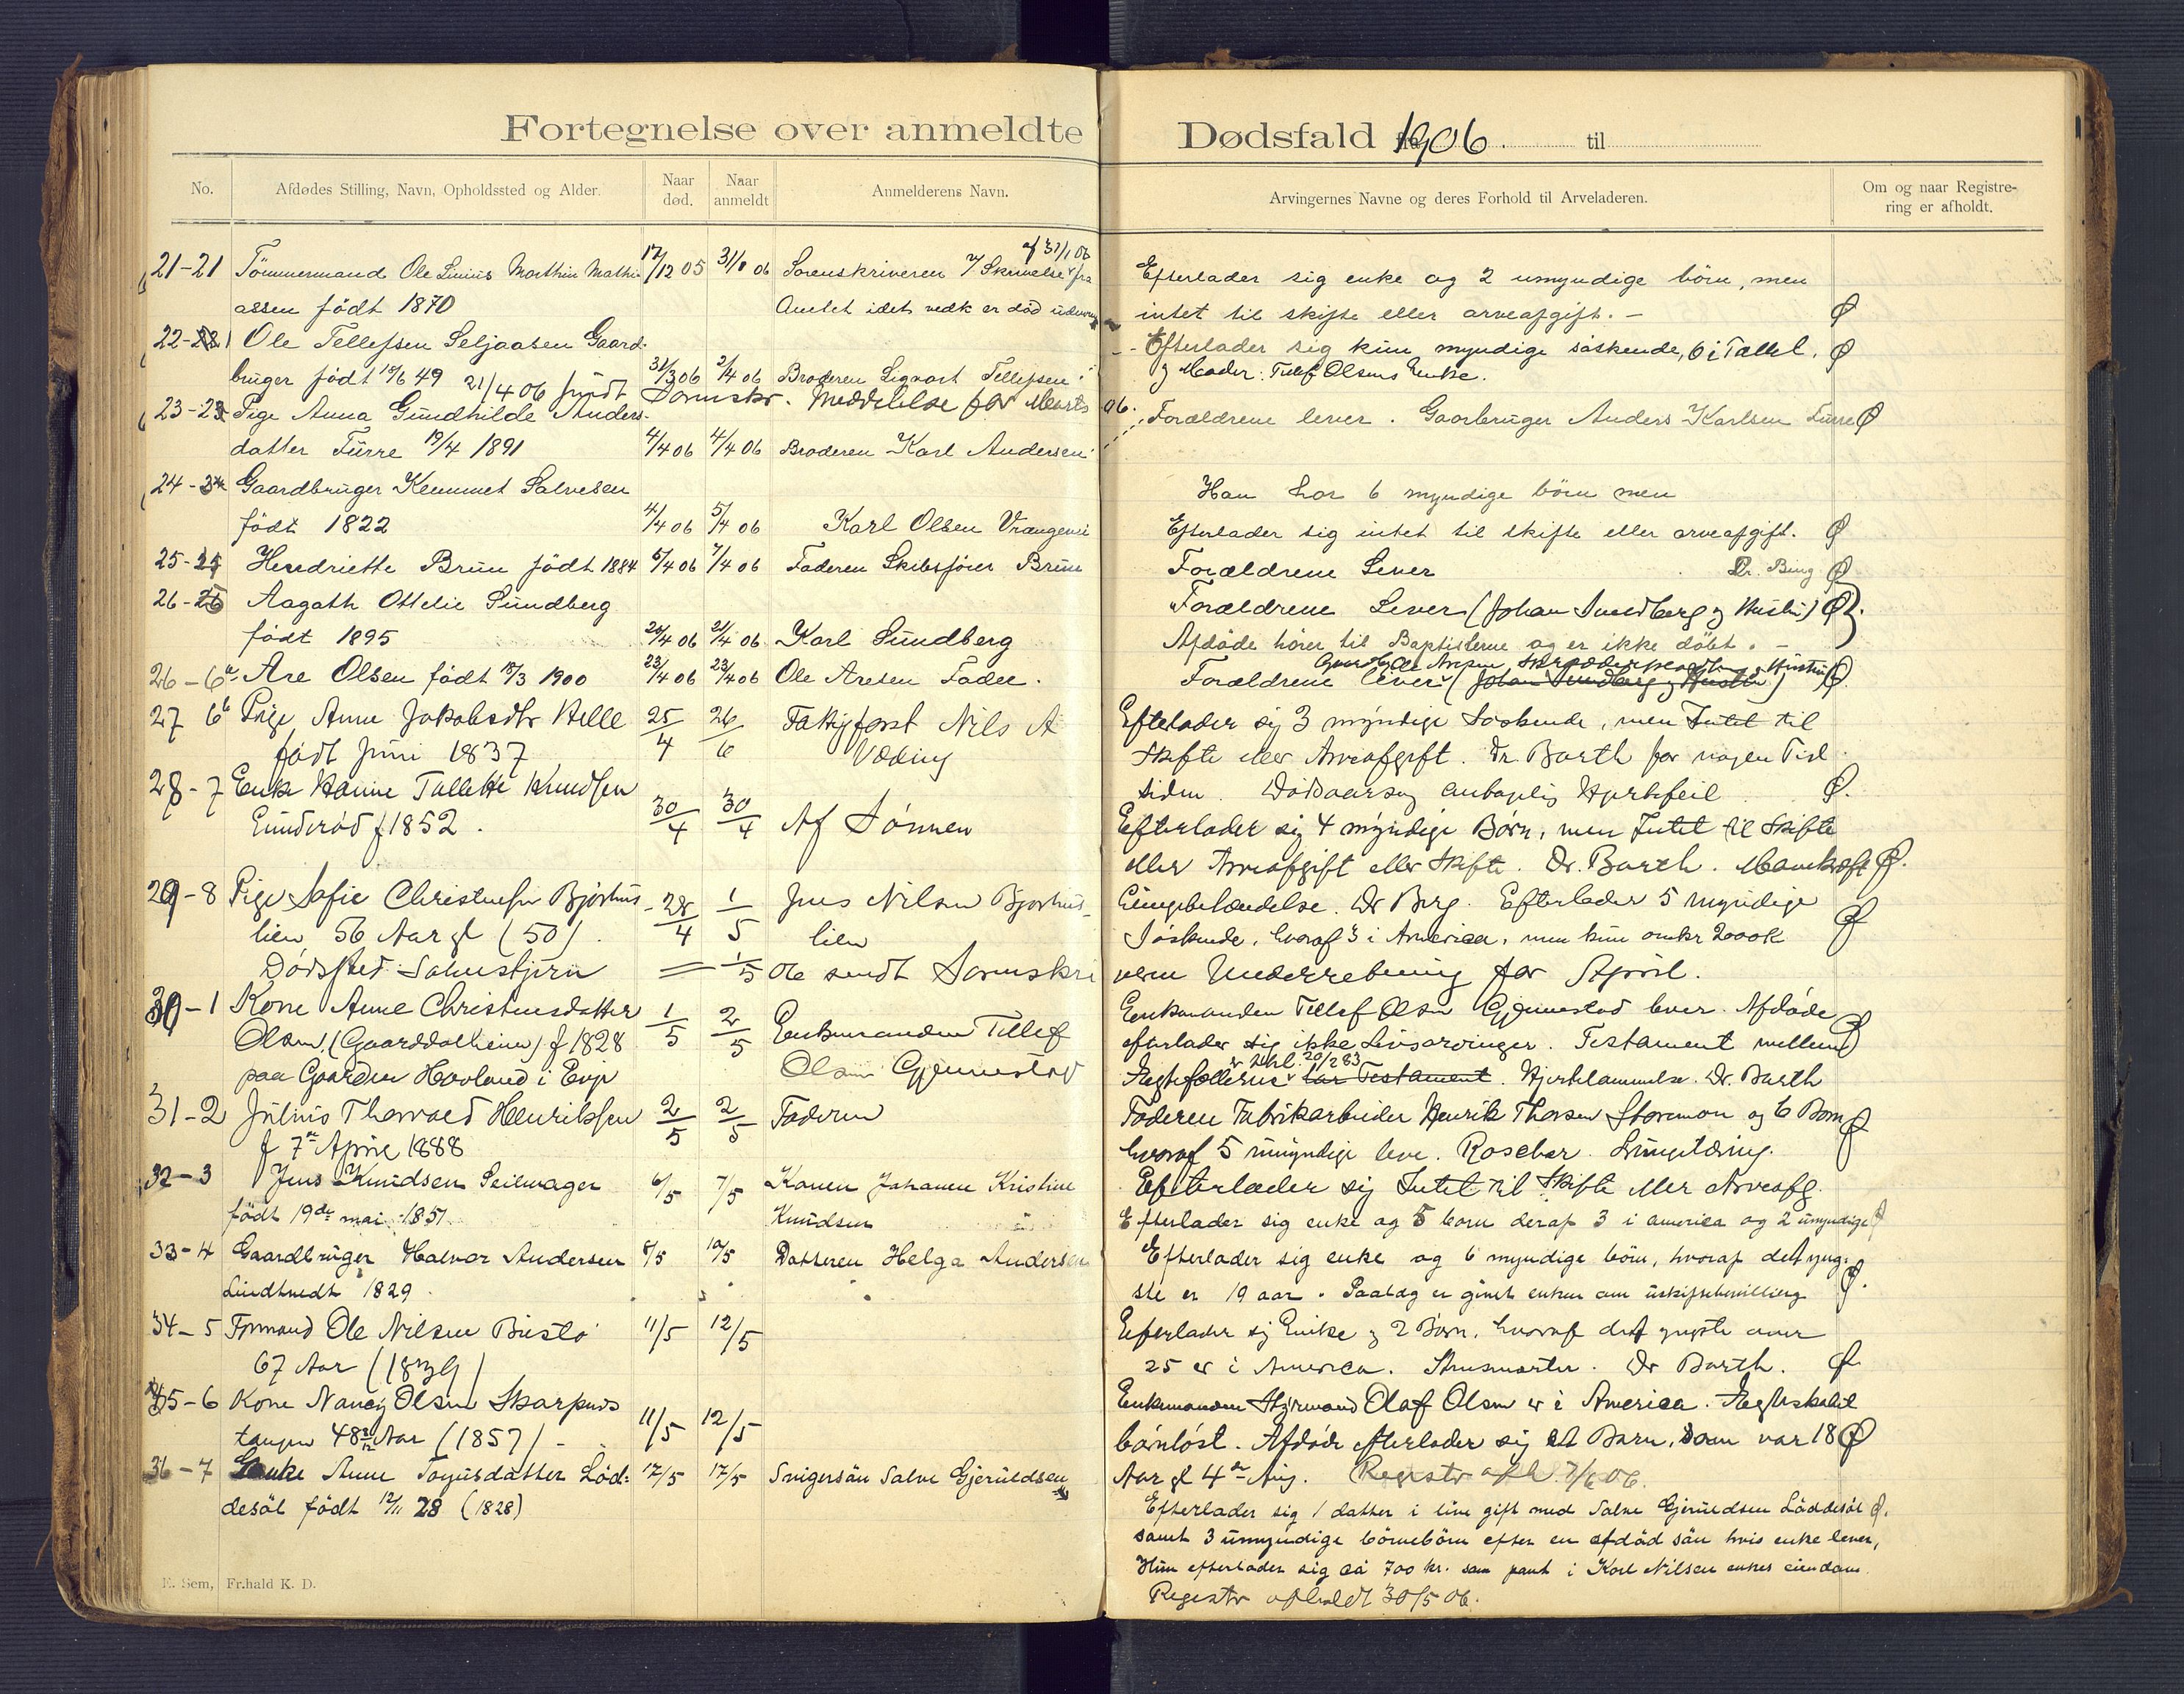 Fortegnelse over anmeldte Dødsfald 1906. til
No. Afdødes Stilling, Navn, Opholdssted og Alder. Naar død. Naar anmeldt Anmelderens Navn. Arvingernes Navne og deres Forhold til Arveladeren. Om og naar Registrering er afholdt.
af 31/1 06
21-21 Tömmermand Ole Marthin Mathi- 12/12 05 31/1 06 Sorenskriveren Skrivelse fra
assen födt 1870 Amtet idet vedk er död
22- Ole Tellefsen Seljaasen Gaard-
bruger födt 18/6 49 31/3 06 2/4 06 Broderen Sigvart Tellefsen
21/4 06 sendt Sorenskr. Meddelelse for Marts 06.
23-23 Pige Anna Gundhilde Anders-
datter Turre 19/4 1891 4/4 06 4/4 06 Broderen Karl Andersen
24- Gaardbruger Kemmet Salvesen
födt 1822 4/4 06 5/4 06 Karl Olsen
25-25 Hendriette Brun födt 1884 5/4 06 7/4 06 Faderen Skibsförer Brun
26-26 Aagath Ottelie Sundberg
födt 1895 20/4 06 21/4 06 Karl Sundberg
26-6a Are Olsen födt 18/3 1900 23/4 06 23/4 06 Ole Aresen Fader.
27 6b Pige Anne Jakobsdtr Helle 25/4 26/6 Fattigforst Nils A
födt Juni 1837 Væding
28-7 Enke Hanne Tallette Knudsen
f 1852. 30/4 30/4 Af Sönnen
29-8 Pige Sofie Christensen Bjorhus- 28/4 1/5 Jens Nilsen Bjorhus-
lien 56 Aar gl (50) lien
Dödssted Salmesbjorn
= 1/5 06 sendt Sorenskriveren Underretning for April.
30-1 Kone Anne Christensdatter 1/5 2/5 Enkemanden Tellef
Olsen (Gaarddalheien) f 1828 Olsen Gjennestad
paa Gaarden Hovland i Evje
31-2 Julius Thorvald Henriksen 2/5 2/5 Faderen
f 7de April 1888
32-3 Jens Knudsen Seilmager 6/5 7/5 Konen Johanne Kristine
födt 19de mai 1851 Knudsen
33-4 Gaardbruger Halvor Andersen 8/5 10/5 Datteren Helga Andersen
Lindtvedt 1829
34-5 Formand Ole Nilsen Bustö 11/5 12/5
67 Aar (1839)
35-6 Kone Nancy Olsen Skarpnes
tangen 48 Aar (1857) 11/5 12/5
36-7 Enke Anne Torjusdatter Löd- 17/5 17/5 Svigersön Salve Gjeruldsen
desöl födt 12/11 28 (1828)
E. Sem, Fr.hald K. D.
Efterlader sig enke og 2 umyndige börn, men
intet til skifte eller arveafgift. -
Efterlader sig kun myndige söskende, 6 i Tallet.
og Moder: Tellef Olsens Enke.
Forældrene lever. Gaarbruger Anders Karlsen Turre
Han har 6 myndige börn men
Efterlader sig intet til skifte eller arveafgift.
Forældrene Lever Dr. Bing
Forældrene Lever (Johan Sundberg og Hustru)
Afdöde hörer til Baptisterne og er ikke döbt. -
Forældrene lever (Johan Sundberg og Hustru)
Efterlader sig 3 myndige Söskende, men Intet til
Skifte eller Arveafgift. Dr. Barth for nogen Tid
siden. Dödsaarsag antagelig Hjertefeil
Efterlader sig 4 myndige Börn, men Intet til Skifte
eller Arveafgift eller Skifte. Dr. Barth.
Lungebetændelse. Dr Berg. Efterlader 5 myndige
Söskende, hvoraf 3 i America, men kun omkr 200 Ok
Enkemanden Tellef Olsen Gjennestad lever. Afdöde
efterlader sig ikke Livsarvinger. Testament mellem
er tinhl. 20/2 83
Ægtefællerne har Testament. Hjertelammelse. Dr. Barth
Faderen Fabrikarbeider Henrik Thorsen og 6 Born
hvoraf 5 umyndige leve. Rosebær. Lungetæring.
Efterlader sig Intet til Skifte eller Arveafg.
Efterlader sig enke og 5 born deraf 3 i america og 2 umyndige
Efterlader sig enke og 6 myndige börn, hvoraf det yng-
ste er 19 aar. Paalæg er givet enken om uskiftebevilling
Efterlader sig Enke og 2 Börn, hvoraf det yngste over
25 er i America. Dr Barth.
Enkemanden Styrmand Olaf Olsen er i America. Ægteskabet
barnlöst. Afdöde efterlader sig et Barn, som var 18
Aar gl 4de Aug. Registr afh. 7/6 06.
Efterlader sig 1 datter i live gift med Salve Gjeruldsen Löddesöl
samt 3 umyndige börnebörn efter en afdöd sön hvis enke lever,
Hun efterlader sig ca 700 kr. som pant i Karl Nilsen enkes eiendom.
Registr afholdt 30/5 06.